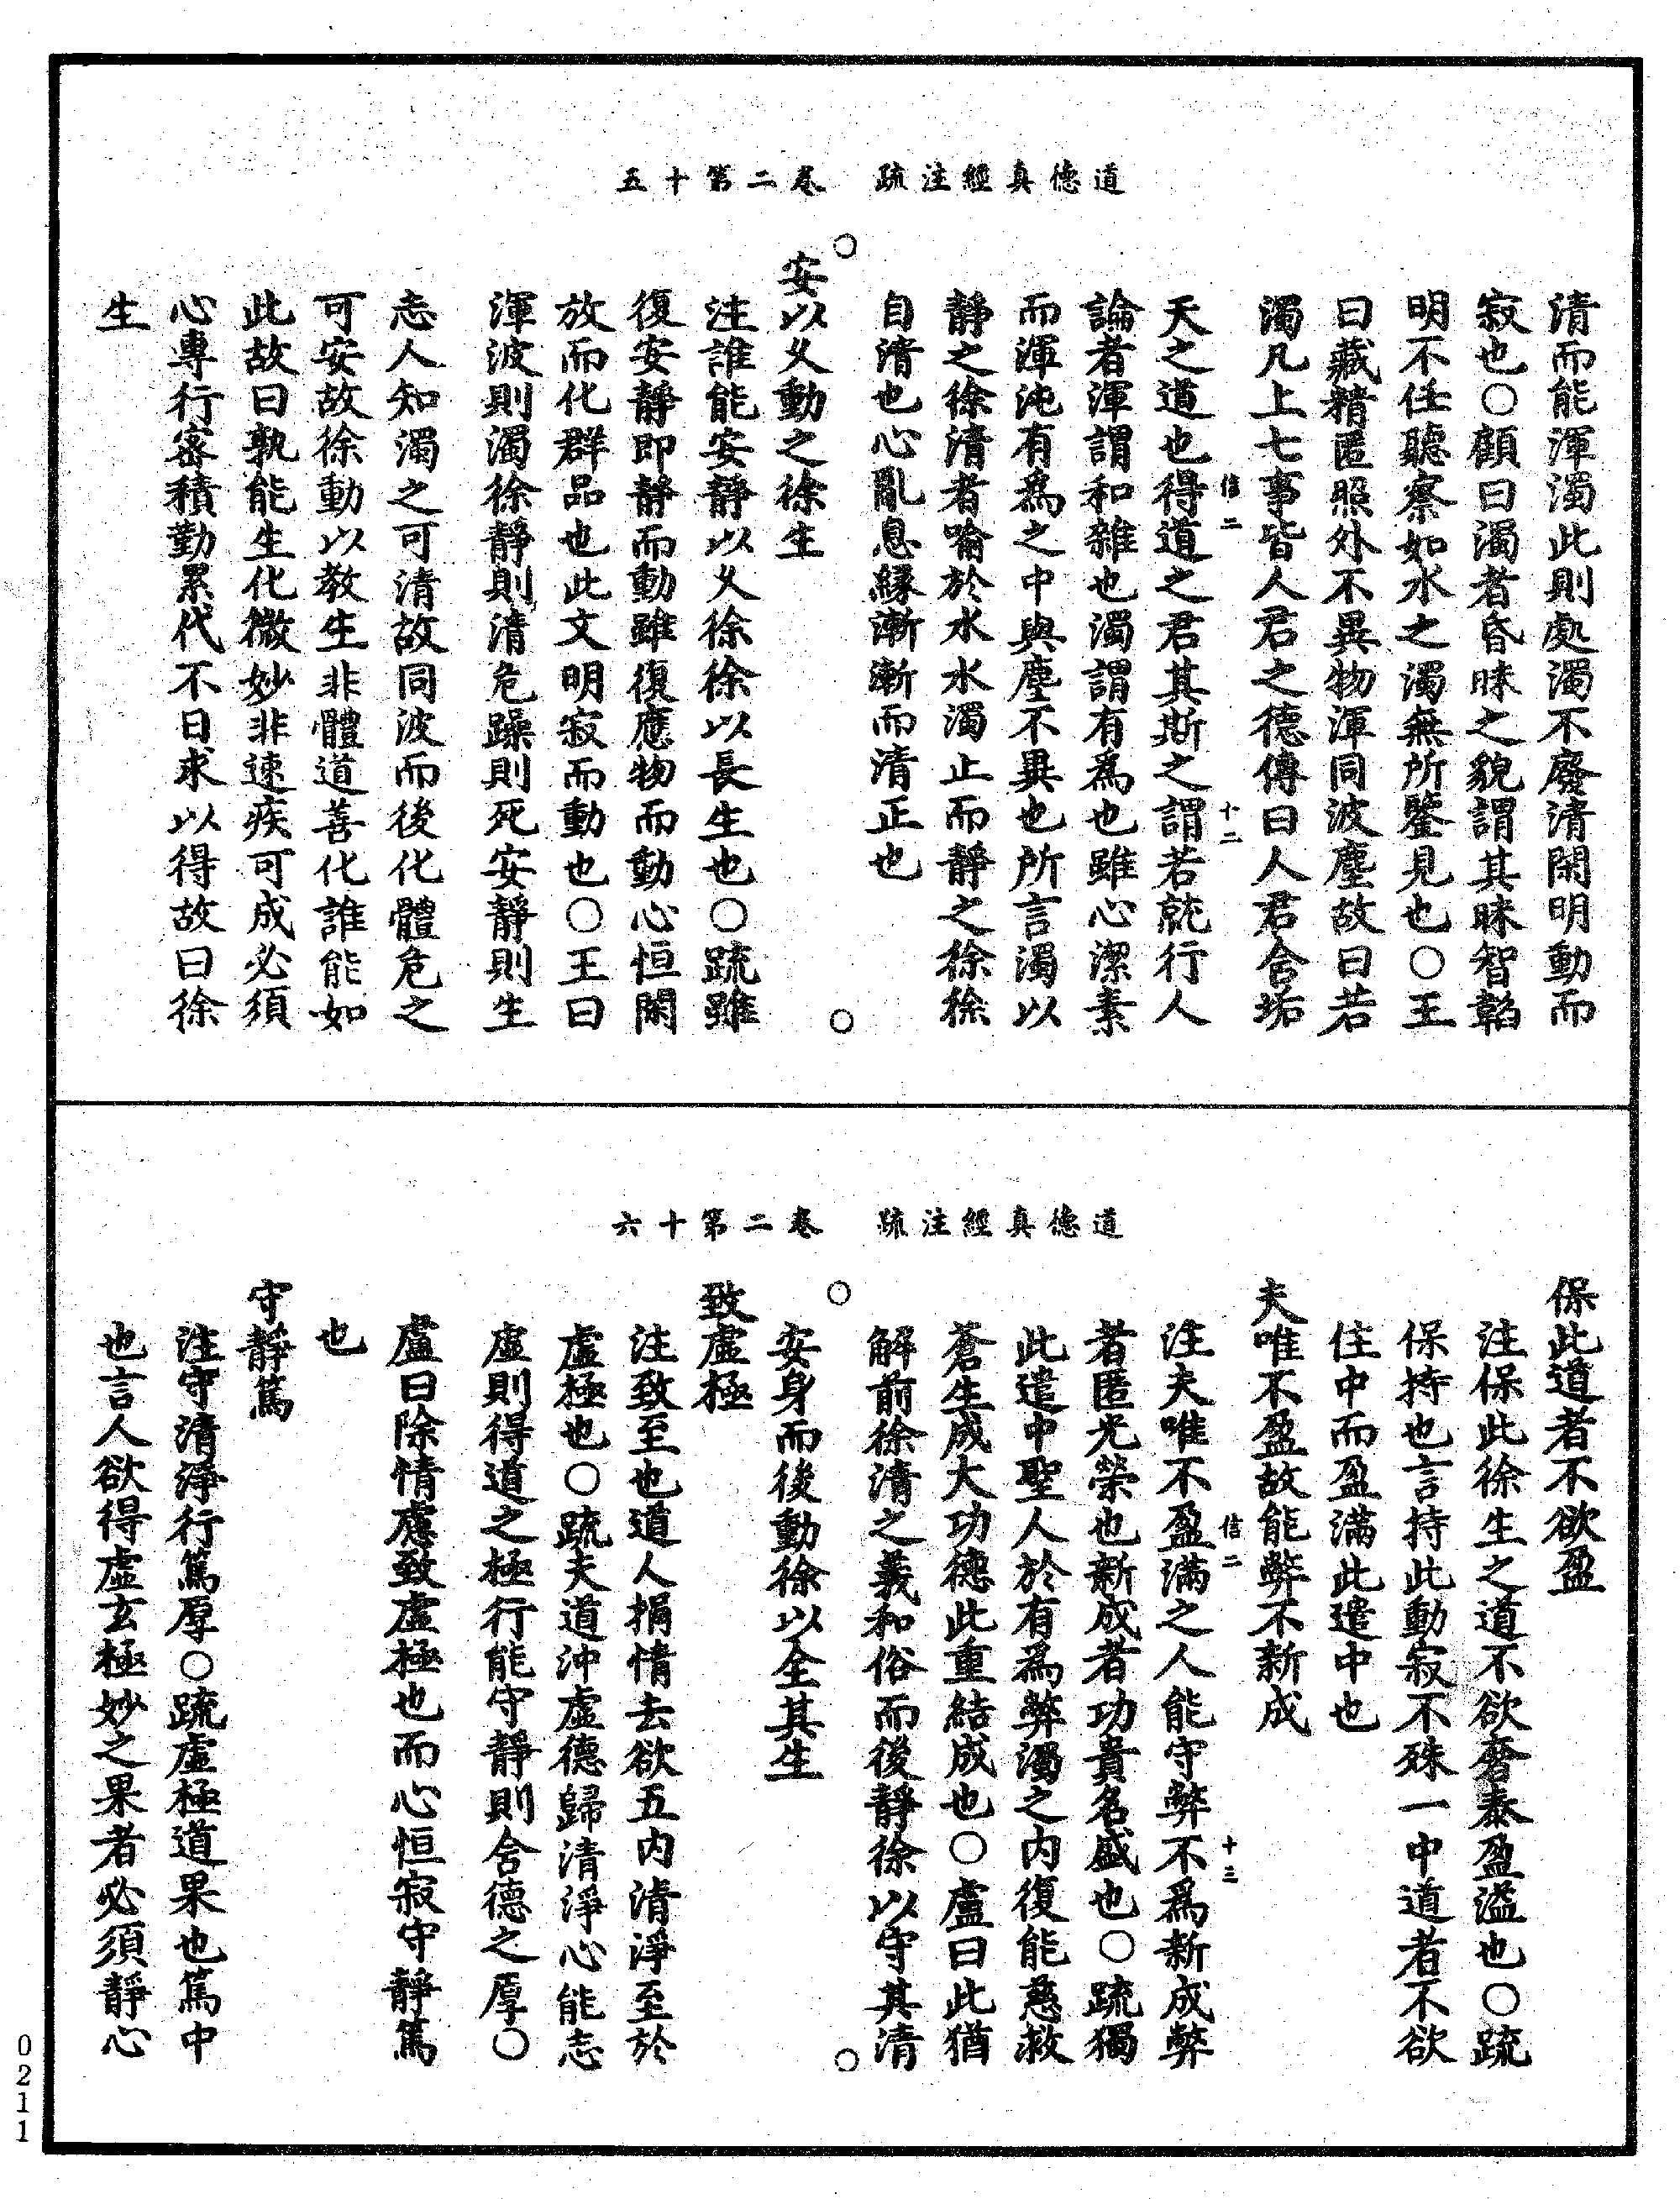 道德真經注疏　卷二第十五
清而能渾濁此則處濁不廢清閑明動而
寂也○顧曰濁者昏昧之貌謂其昧智韜
明不任聽察如水之濁無所鑒見也○王
曰藏精匿照外不異物渾同波塵故曰若
濁凡上七事皆人君之德傳曰人君含垢
信二　十二
天之道也得道之君其斯之謂若就行人
論者渾謂和雜也濁謂有為也雖心潔素
而渾沌有為之中與塵不異也所言濁以
靜之徐清者喻於水水濁止而靜之徐徐
自清也心亂息緣漸漸而清正也
○安以久動之徐生○
注誰能安靜以久徐徐以長生也○疏雖
復安靜即靜而動雖復應物而動心恒閑
放而化群品也此文明寂而動也○王曰
渾波則濁徐靜則清危躁則死安靜則生
志人知濁之可清故同波而後化體危之
可安故徐動以教生非體道善化誰能如
此故曰孰能生化微妙非速疾可成必須
心專行密積勤累代不日求以得故曰徐
生
道德真經注疏　卷二第十六
保此道者不欲盈
注保此徐生之道不欲奢泰盈溢也○疏
保持也言持此動寂不殊一中道者不欲
住中而盈滿此遣中也
夫唯不盈故能弊不新成
信二　十三
注夫唯不盈滿之人能守弊不為新成弊
者匿光榮也新成者功貴名盛也○疏獨
此遣中聖人於有為弊濁之內復能慈救
蒼生成大功德此重結成也○盧曰此猶
解前徐清之義和俗而後靜徐以守其清
○安身而後動徐以全其生○
致虛極
注致至也道人捐情去欲五內清淨至於
虛極也○疏夫道沖虛德歸清淨心能志
虛則得道之極行能守靜則含德之厚○
盧曰除情慮致虛極也而心恒寂守靜篤
也
守靜篤
注守清淨行篤厚○疏虛極道果也篤中
也言人欲得虛玄極妙之果者必須靜心
0211